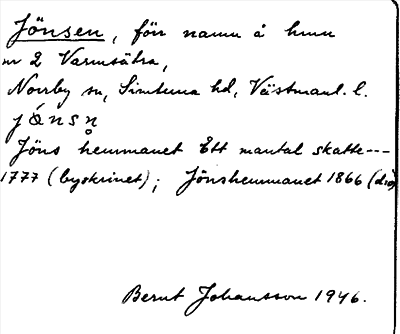 Jönsen, förr namn å hmn
nr 2 Varmsätra,
Norrby sn, Simtuna hd, Västmanl. l.
jånsn
Jöns hemmanet Ett mantal skatte---
1777 (byskrinet); Jönshemmanet 1866 (dio)
Bernt Johansson 1946.